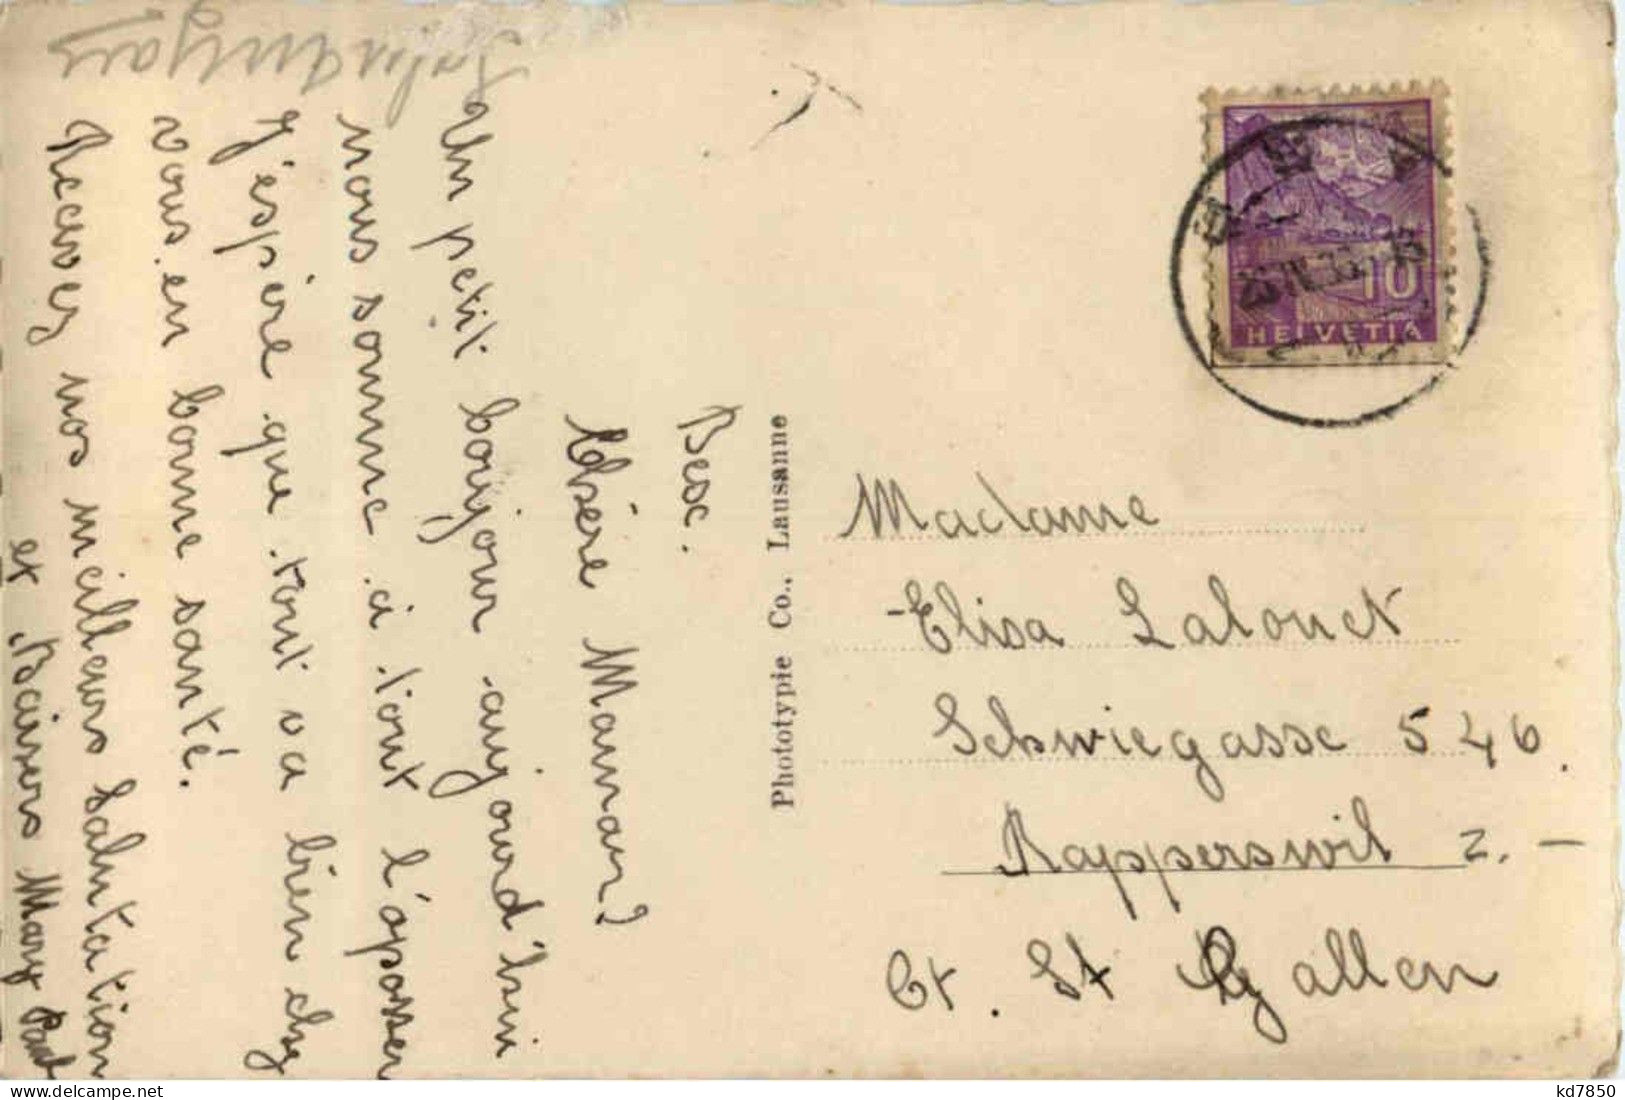 Bex.
Chsère Maman?
Un petit boujour aujourd'hui
nous somme à tout l'oposser
J'éspère que tout va bien chez
vous en bonne santé.
Recevez nos meilleurs Salutation
et Baisers Mary Paul
Phototypie Co., Lausanne
HELVETIA
10
Madame
Elisa Lalouet
Schmiegasse 546.
Rapperswil z. –
Ct. St Gallen
kd7850